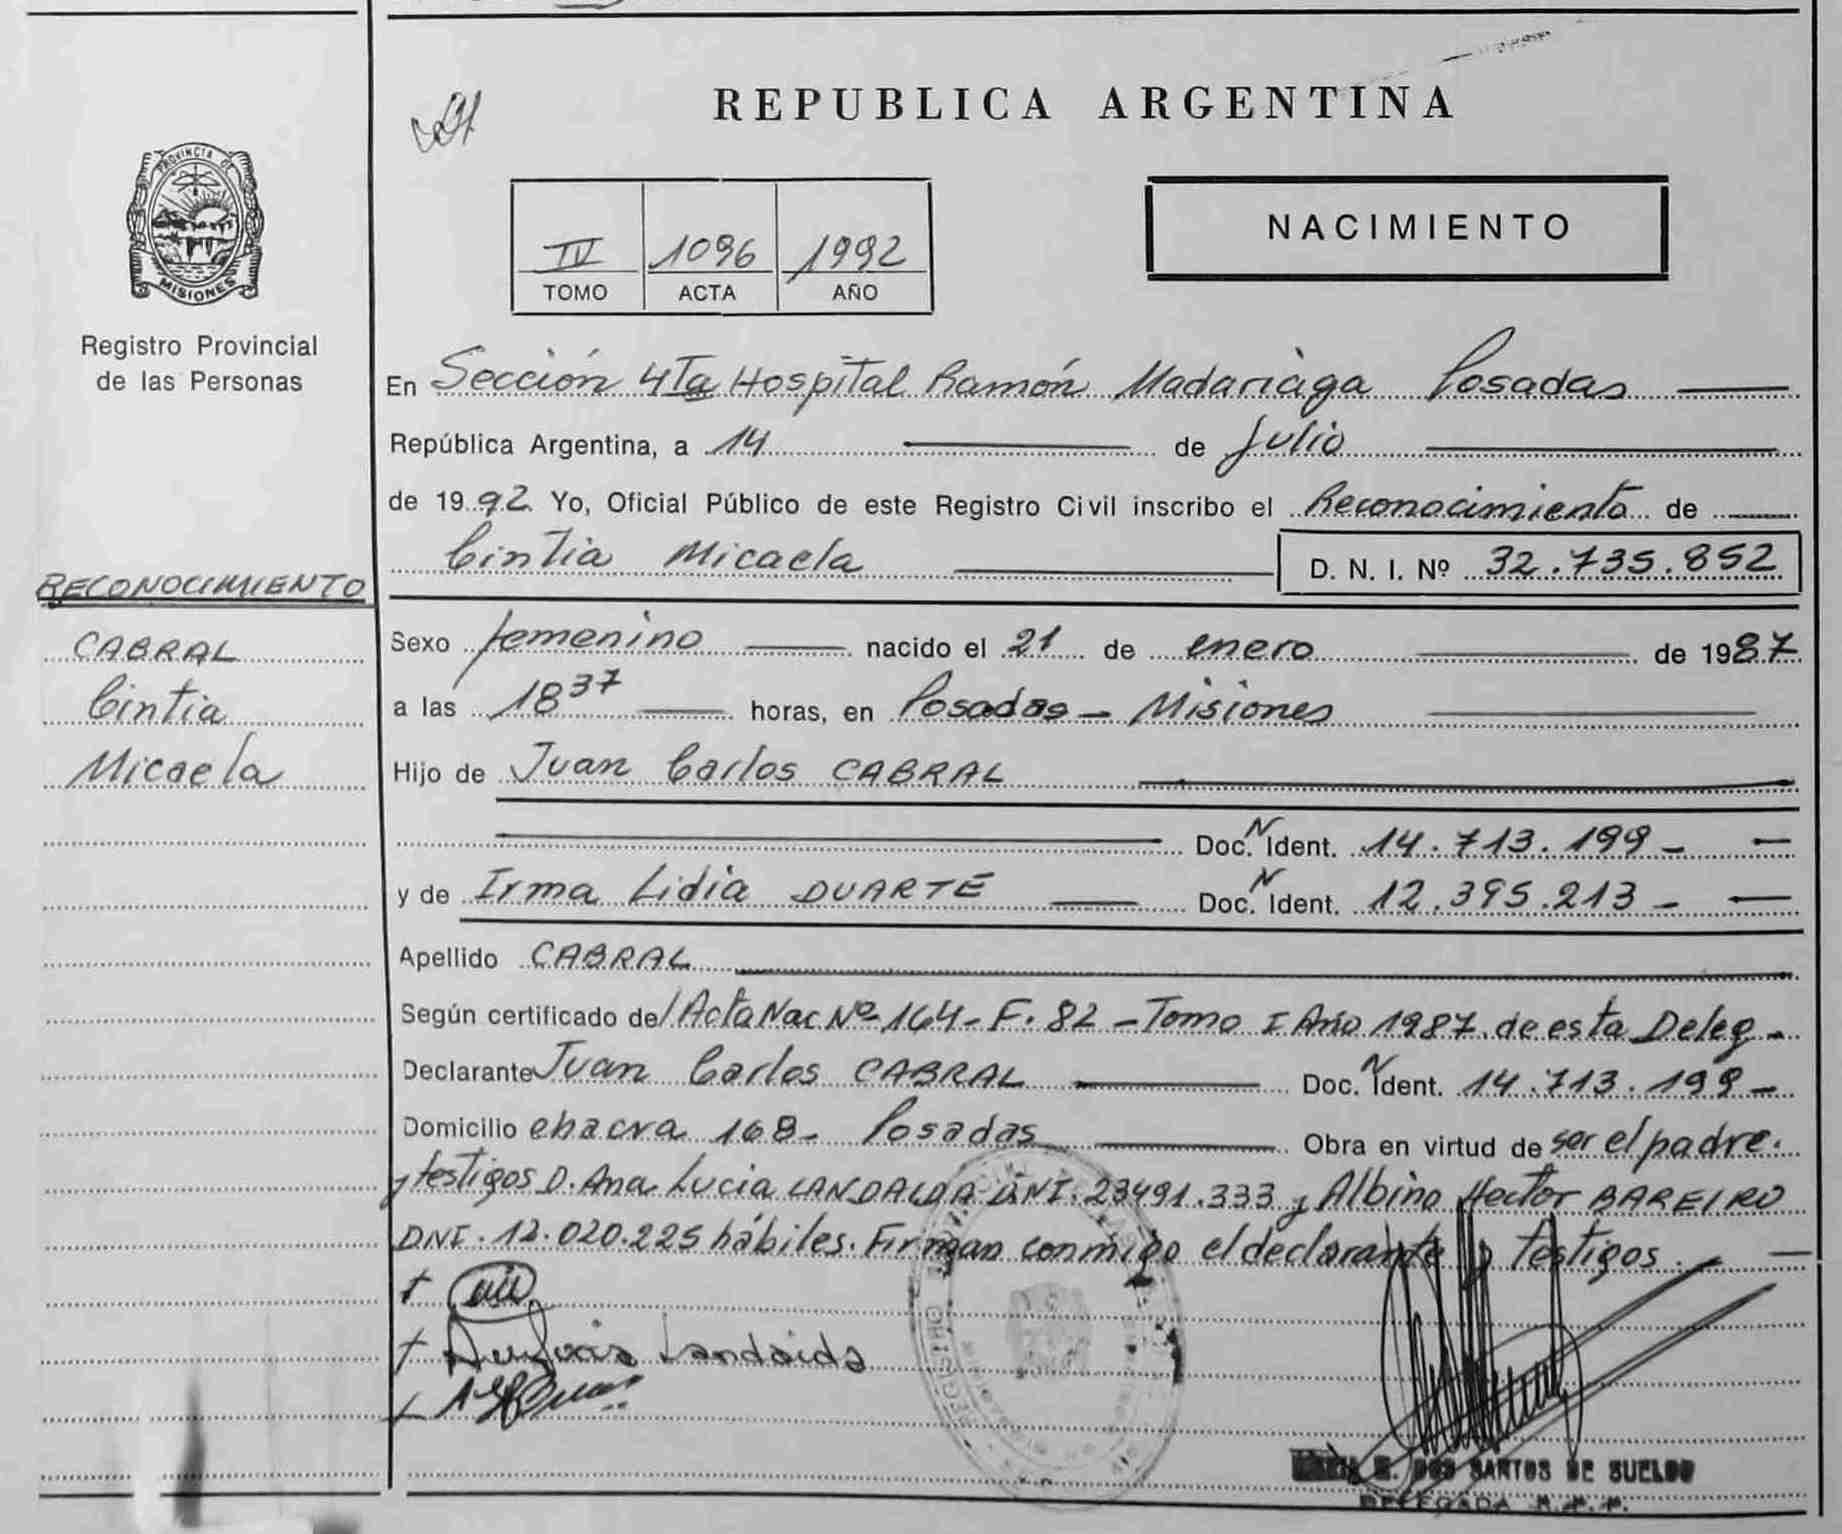 REPUBLICA ARGENTINA
PROVINCIA DE
MISIONES
Registro Provincial
de las Personas
IV 1096 1992
TOMO ACTA AÑO
NACIMIENTO
En Sección 4Ta Hospital Ramón Madariaga Posadas
República Argentina, a 14 de Julio
de 1992 Yo, Oficial Público de este Registro Civil inscribo el Reconocimiento de
Cintia Micaela D. N. I. Nº 32.735.852
RECONOCIMIENTO
CABRAL
Cintia
Micaela
Sexo femenino nacido el 21 de enero de 1987
a las 18 37 horas, en Posadas - Misiones
Hijo de Juan Carlos CABRAL
Doc. N Ident. 14.713.199 -
y de Irma Lidia DUARTE Doc. N Ident. 12.395.213 -
Apellido CABRAL
Según certificado de/ Acta Nac Nº 164 - F. 82 - Tomo I Año 1987 de esta Deleg -
Declarante Juan Carlos CABRAL Doc. N Ident. 14.713.199 -
Domicilio chacra 168 - Posadas Obra en virtud de ser el padre.
y testigos D. Ana Lucia DNI. 23491.333 y Albino Hector BAREIRO
DNI. 12.020.225 hábiles. Firman conmigo el declarante y testigos.
Landaida
DOS SANTOS DE SUELDO
DELEGADA R.P.P.